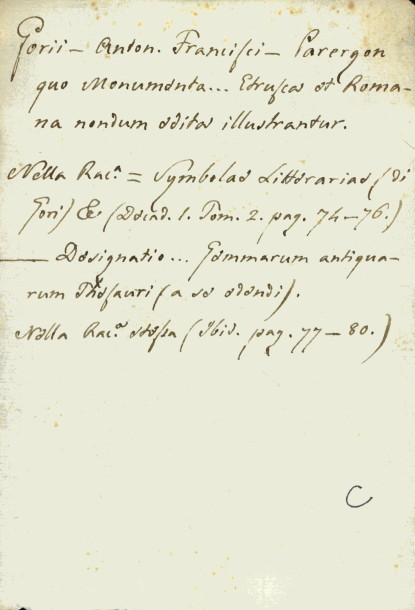 Gorii — Anton. Francisci — Parergon
quo Monumenta... Etrusca et Roma-
na nondum edita illustrantur.
Nella Rac.a = Symbolae Litterariae (di
Gori) & (Decad. 1. Tom. 2. pag. 74-76.)
— Designatio... Gemmarum antiqua-
rum Thesauri (a se edendi).
Nella Rac.a stessa (Ibid. pag. 77-80.)
C